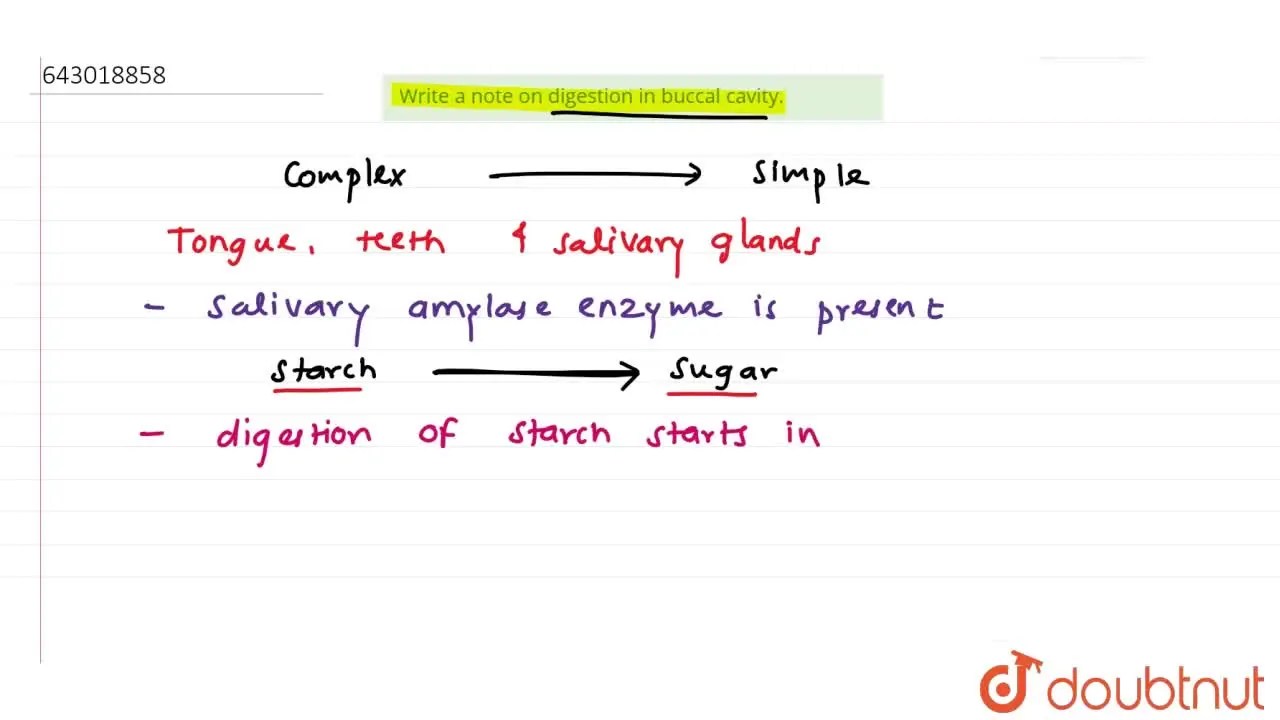 643018858
Write a note on digestion in buccal cavity.
Complex → Simple
Tongue, teeth & salivary glands
- salivary amylase enzyme is present
starch → sugar
- digestion of starch starts in
doubtnut